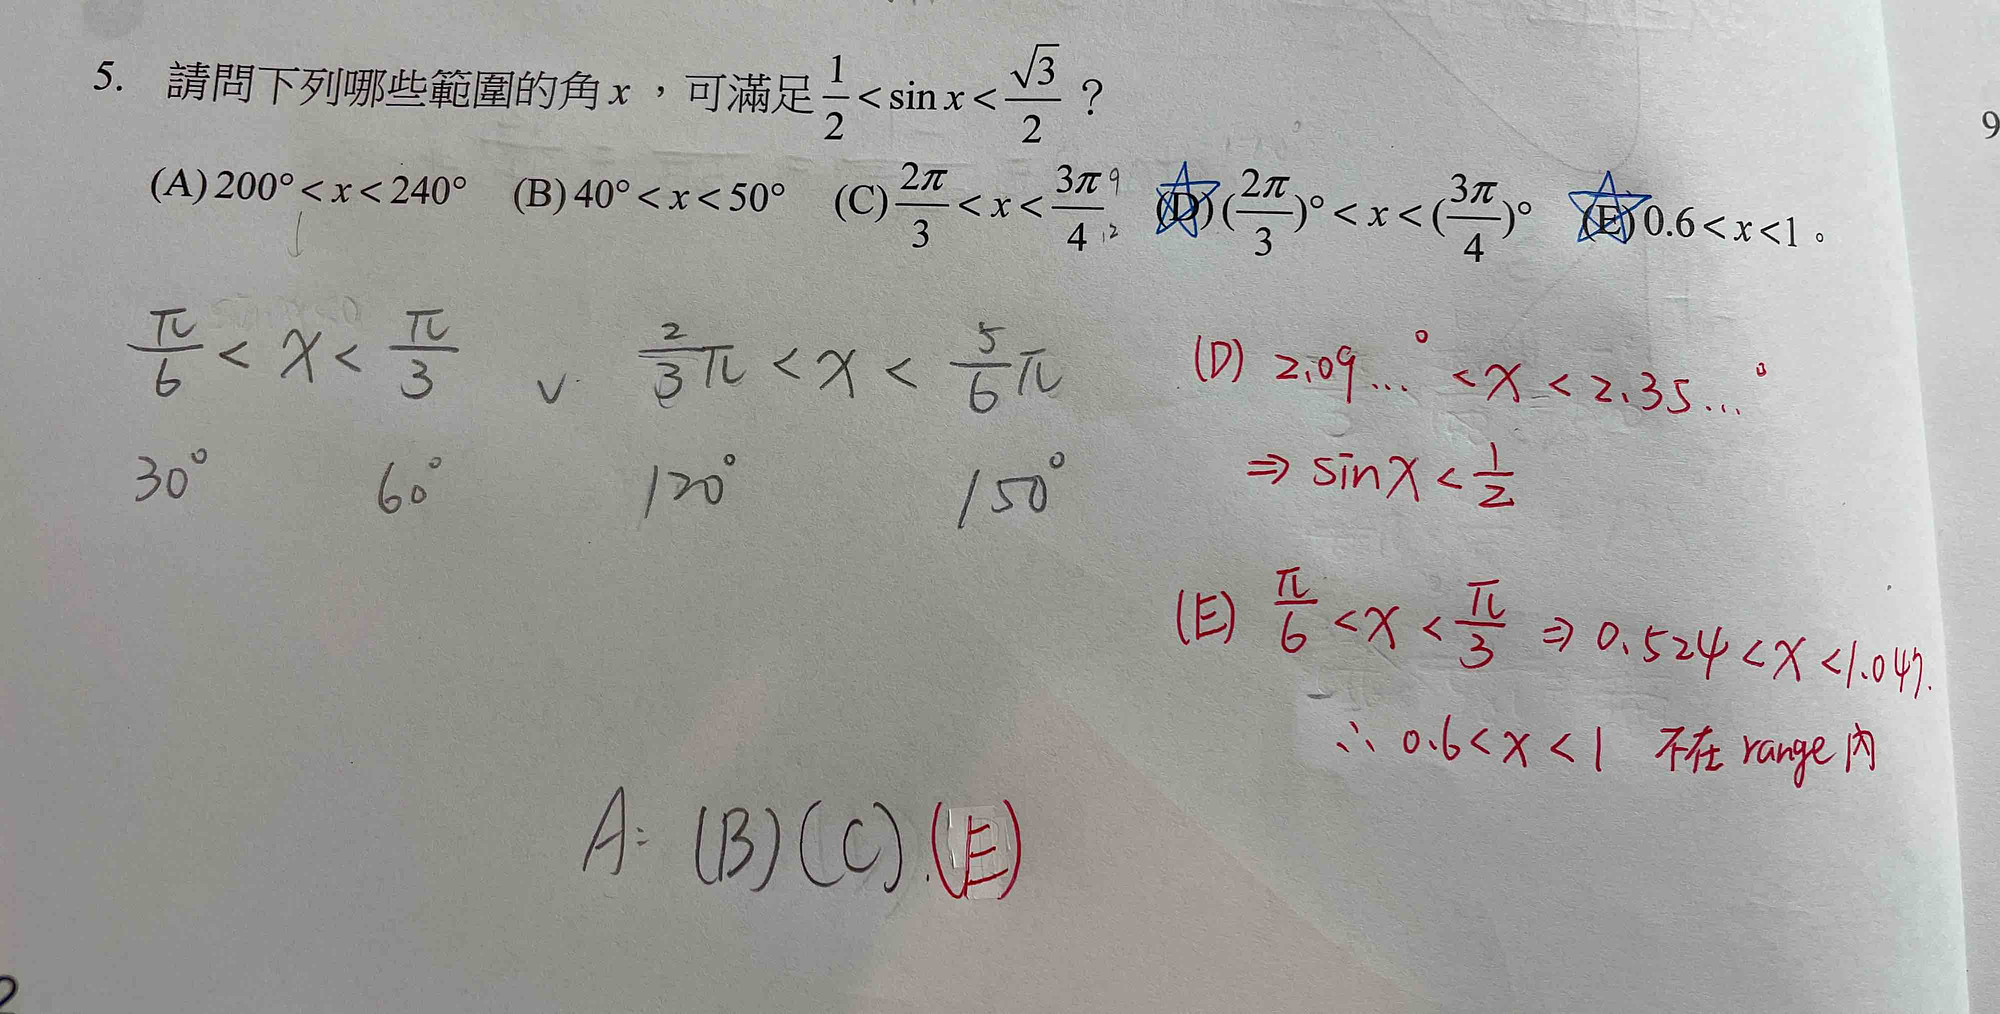 5. 請問下列哪些範圍的角 x ，可滿足 1/2 < sin x < √3/2 ？
9
(A) 200° < x < 240° (B) 40° < x < 50° (C) 2π/3 < x < 3π/4 9/12 (D) (2π/3)° < x < (3π/4)° (E) 0.6 < x < 1 。
π/6 < x < π/3 ∨ 2/3 π < x < 5/6 π
30° 60° 120° 150°
(D) 2.09...° < x < 2.35...°
⇒ sin x < 1/2
(E) π/6 < x < π/3 ⇒ 0.524 < x < 1.047.
∴ 0.6 < x < 1 不在 range 內
A: (B) (C).(E)
2